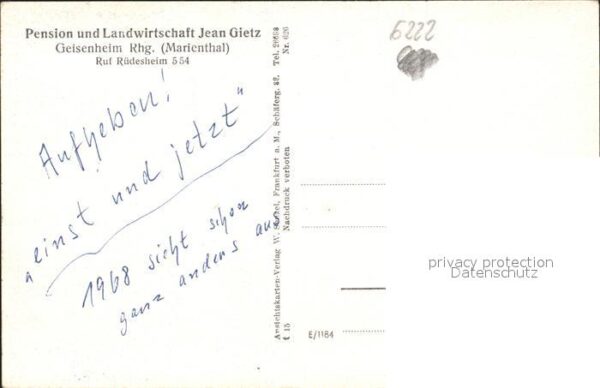 Pension und Landwirtschaft Jean Gietz
Geisenheim Rhg. (Marienthal)
Ruf Rüdesheim 554
Aufheben!
„einst und jetzt"
1968 sieht schon
ganz anders aus
Ansichtskarten-Verlag W. Frankfurt a. M., Schäferg. Tel.
Nachdruck verboten Nr.
t 15
E/1184
6222
privacy protection
Datenschutz